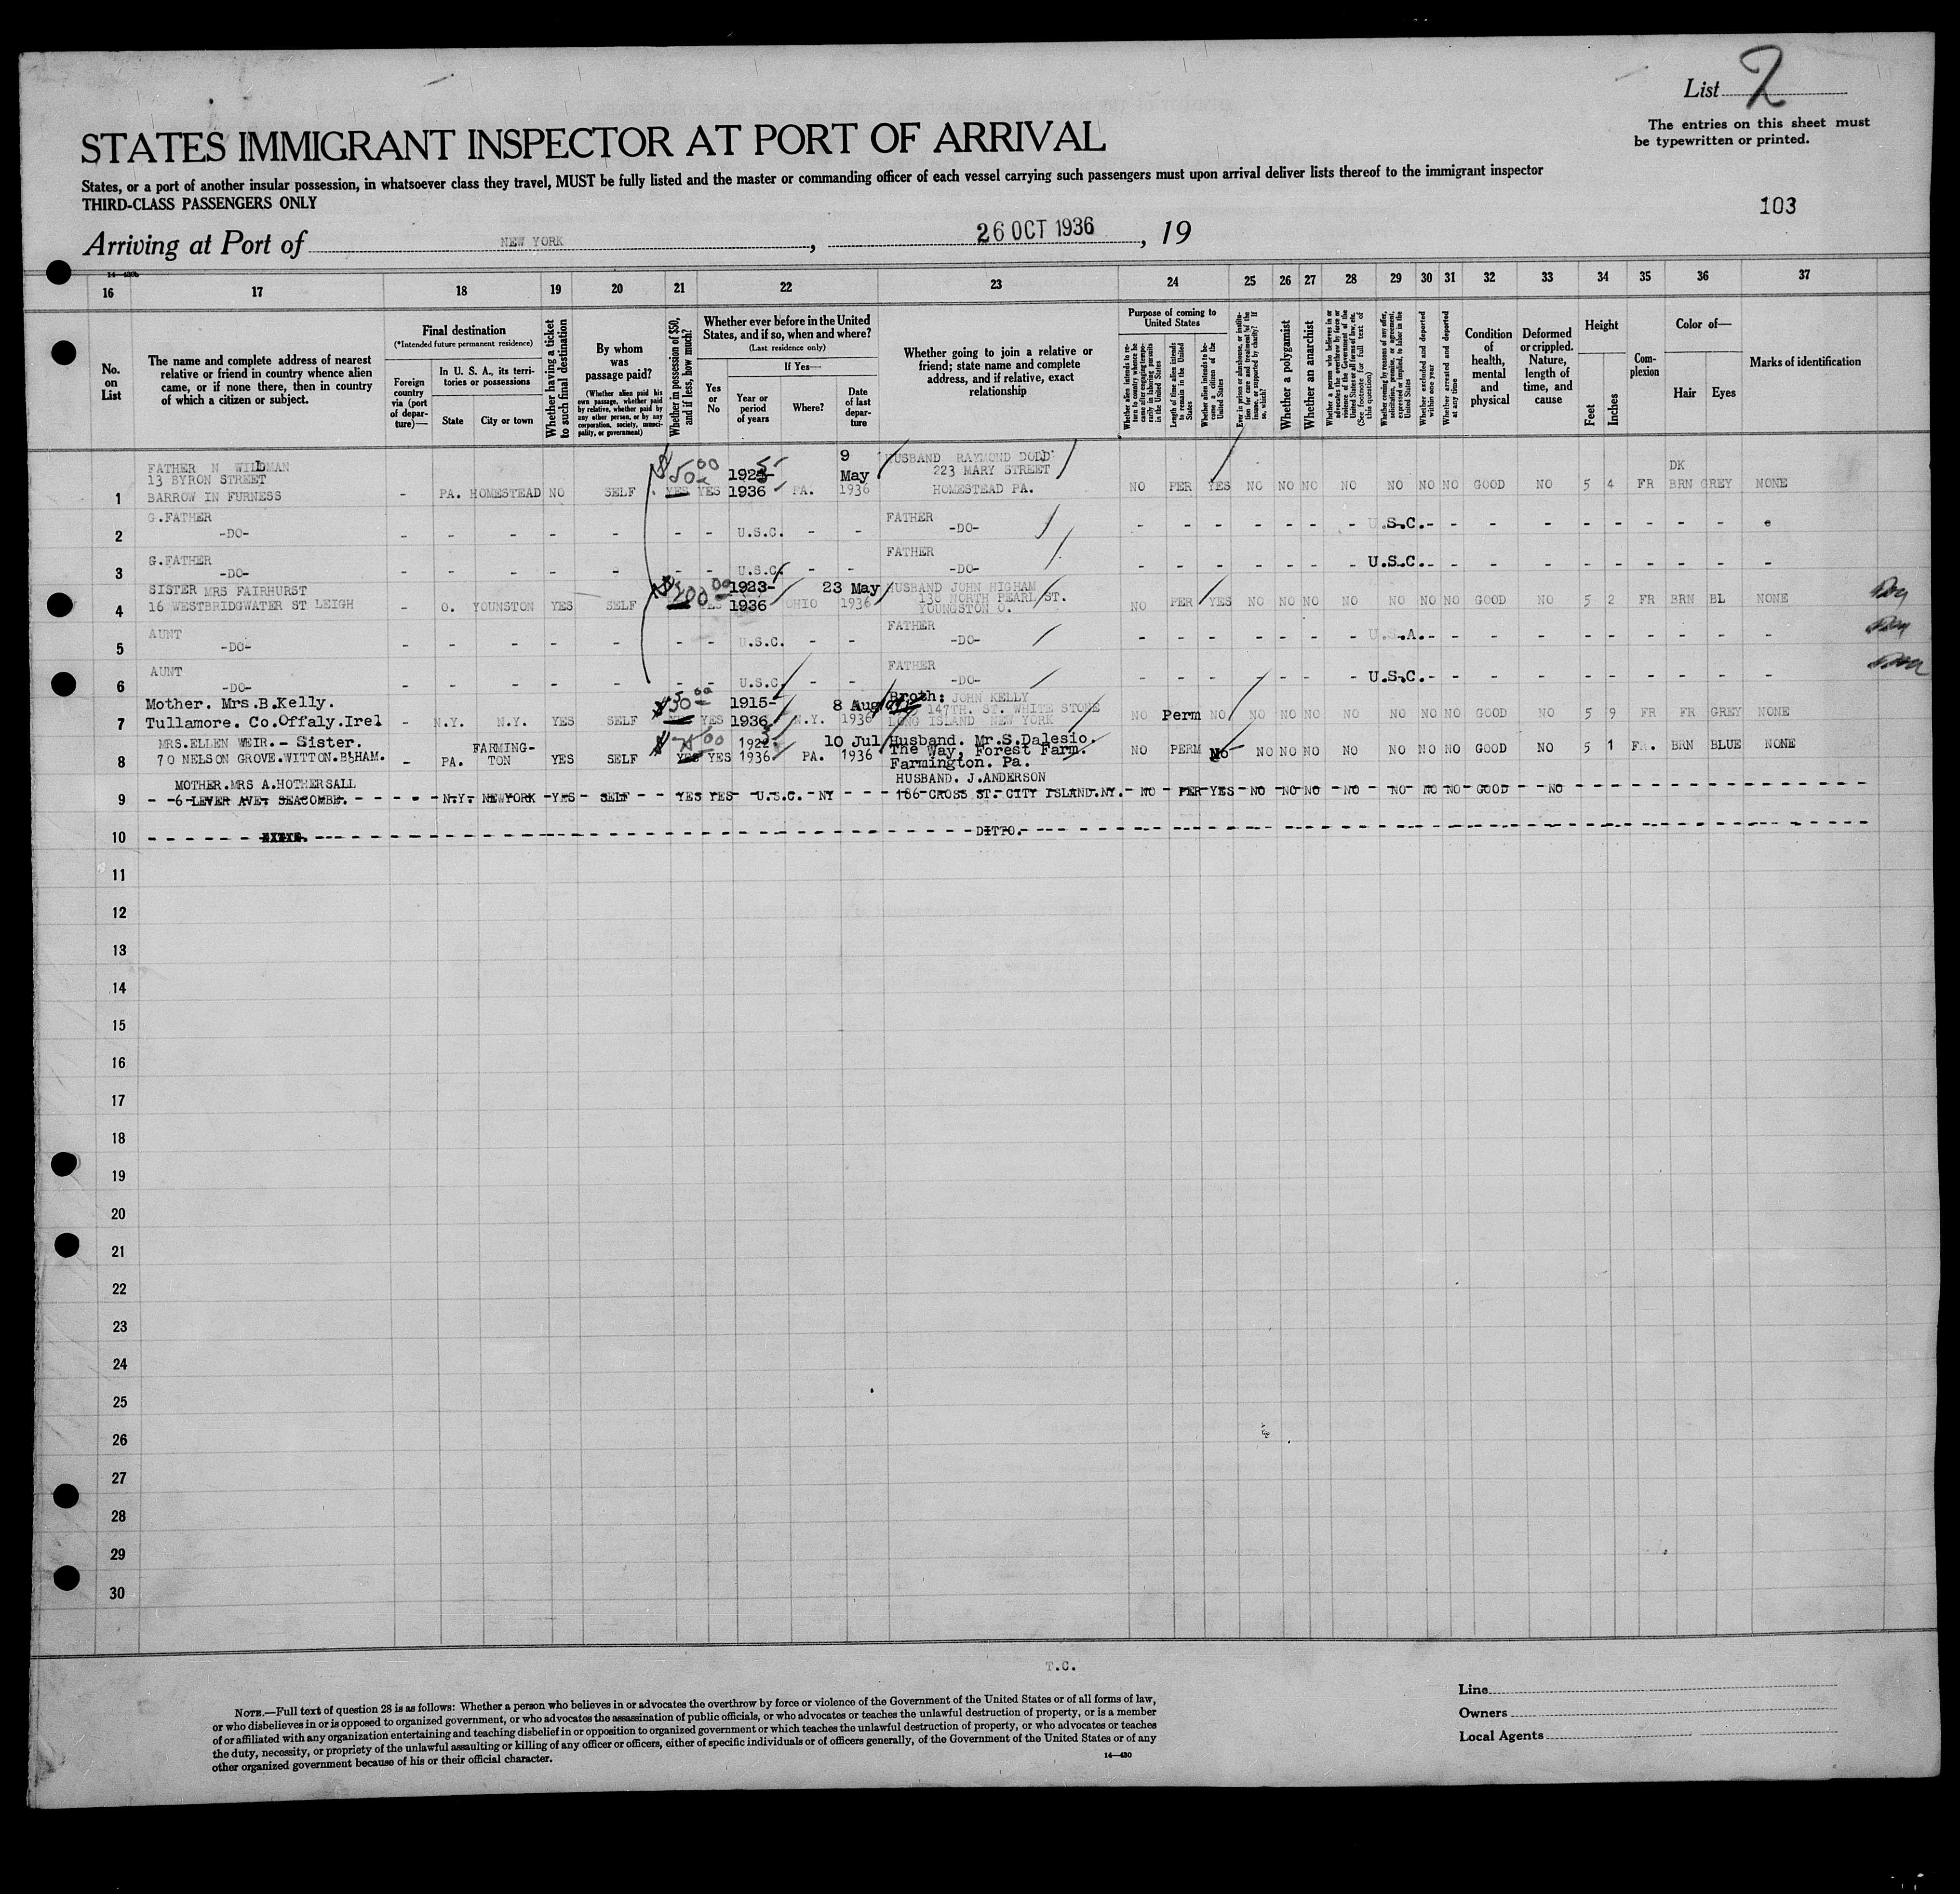 List 2
The entries on this sheet must
be typewritten or printed.
STATES IMMIGRANT INSPECTOR AT PORT OF ARRIVAL
States, or a port of another insular possession, in whatsoever class they travel, MUST be fully listed and the master or commanding officer of each vessel carrying such passengers must upon arrival deliver lists thereof to the immigrant inspector
THIRD-CLASS PASSENGERS ONLY
103
Arriving at Port of NEW YORK, 26 OCT 1936, 19
16 17 18 19 20 21 22 23 24 25 26 27 28 29 30 31 32 33 34 35 36 37
No. on List
The name and complete address of nearest relative or friend in country whence alien came, or if none there, then in country of which a citizen or subject.
Final destination
(*Intended future permanent residence)
Foreign country via (port of departure)—
In U. S. A., its territories or possessions
State
City or town
Whether having a ticket to such final destination
By whom was passage paid?
(Whether alien paid his own passage, whether paid by relative, whether paid by any other person, or by any corporation, society, municipality, or government)
Whether in possession of $50, and if less, how much?
Whether ever before in the United States, and if so, when and where?
(Last residence only)
Yes or No
If Yes—
Year or period of years
Where?
Date of last departure
Whether going to join a relative or friend; state name and complete address, and if relative, exact relationship
Purpose of coming to United States
Length of time alien intends to remain in the United States
Whether alien intends to become a citizen of the United States
Whether a polygamist
Whether an anarchist
Whether excluded and deported within one year
Whether arrested and deported at any time
Condition of health, mental and physical
Deformed or crippled. Nature, length of time, and cause
Height
Feet
Inches
Complexion
Color of—
Hair
Eyes
Marks of identification
FATHER N WILDMAN
13 BYRON STREET
1 BARROW IN FURNESS - PA. HOMESTEAD NO SELF YES $50 00 YES 1925- 1936 PA. 9 May 1936 HUSBAND RAYMOND DODD 223 MARY STREET HOMESTEAD PA. NO PER YES NO NO NO NO NO NO NO GOOD NO 5 4 FR DK BRN GREY NONE
G.FATHER
2 -DO- - - - - - - - U.S.C. - - FATHER -DO- - - - - - - - U.S.C. - - - - - - - - - -
G.FATHER
3 -DO- - - - - - - - U.S.C. - - FATHER -DO- - - - - - - - U.S.C. - - - - - - - - - -
SISTER MRS FAIRHURST
4 16 WESTBRIDGWATER ST LEIGH - O. YOUNSTON YES SELF YES 1923- 1936 OHIO 23 May 1936 HUSBAND JOHN HIGHAM 130 NORTH PEARL ST. YOUNGSTON O. NO PER YES NO NO NO NO NO NO NO GOOD NO 5 2 FR BRN BL NONE
AUNT
5 -DO- - - - - - - - U.S.C. - - FATHER -DO- - - - - - - - U.S.A. - - - - - - - - - -
AUNT
6 -DO- - - - - - - - U.S.C. - - FATHER -DO- - - - - - - - U.S.C. - - - - - - - - - -
Mother. Mrs.B.Kelly.
7 Tullamore. Co.Offaly.Irel - N.Y. N.Y. YES SELF $50 00 YES 1915- 1936 N.Y. 8 Aug 1936 Broth: JOHN KELLY 147TH. ST. WHITE STONE LONG ISLAND NEW YORK NO Perm NO NO NO NO NO NO NO NO GOOD NO 5 9 FR FR GREY NONE
MRS.ELLEN WEIR.- Sister.
8 70 NELSON GROVE.WITTON.B'HAM. - PA. FARMING-TON YES SELF YES $75 00 YES 1923- 1936 PA. 10 Jul 1936 Husband. Mr.S.Dalesio. The Way, Forest Farm. Farmington. Pa. NO PERM No NO NO NO NO NO NO NO GOOD NO 5 1 FR. BRN BLUE NONE
MOTHER.MRS A.HOTHERSALL
9 6 LEVER AVE. SEACOMBE. N.Y. NEWYORK YES SELF YES YES U.S.C. NY HUSBAND. J.ANDERSON 186 CROSS ST. CITY ISLAND.NY. NO PER YES NO NO NO NO NO NO NO GOOD NO
10 DITTO.
11
12
13
14
15
16
17
18
19
20
21
22
23
24
25
26
27
28
29
30
T.C.
NOTE.—Full text of question 28 is as follows: Whether a person who believes in or advocates the overthrow by force or violence of the Government of the United States or of all forms of law,
or who disbelieves in or is opposed to organized government, or who advocates the assassination of public officials, or who advocates or teaches the unlawful destruction of property, or is a member
of or affiliated with any organization entertaining and teaching disbelief in or opposition to organized government or which teaches the unlawful destruction of property, or who advocates or teaches
the duty, necessity, or propriety of the unlawful assaulting or killing of any officer or officers, either of specific individuals or of officers generally, of the Government of the United States or of any
other organized government because of his or their official character.
14—430
Line
Owners
Local Agents